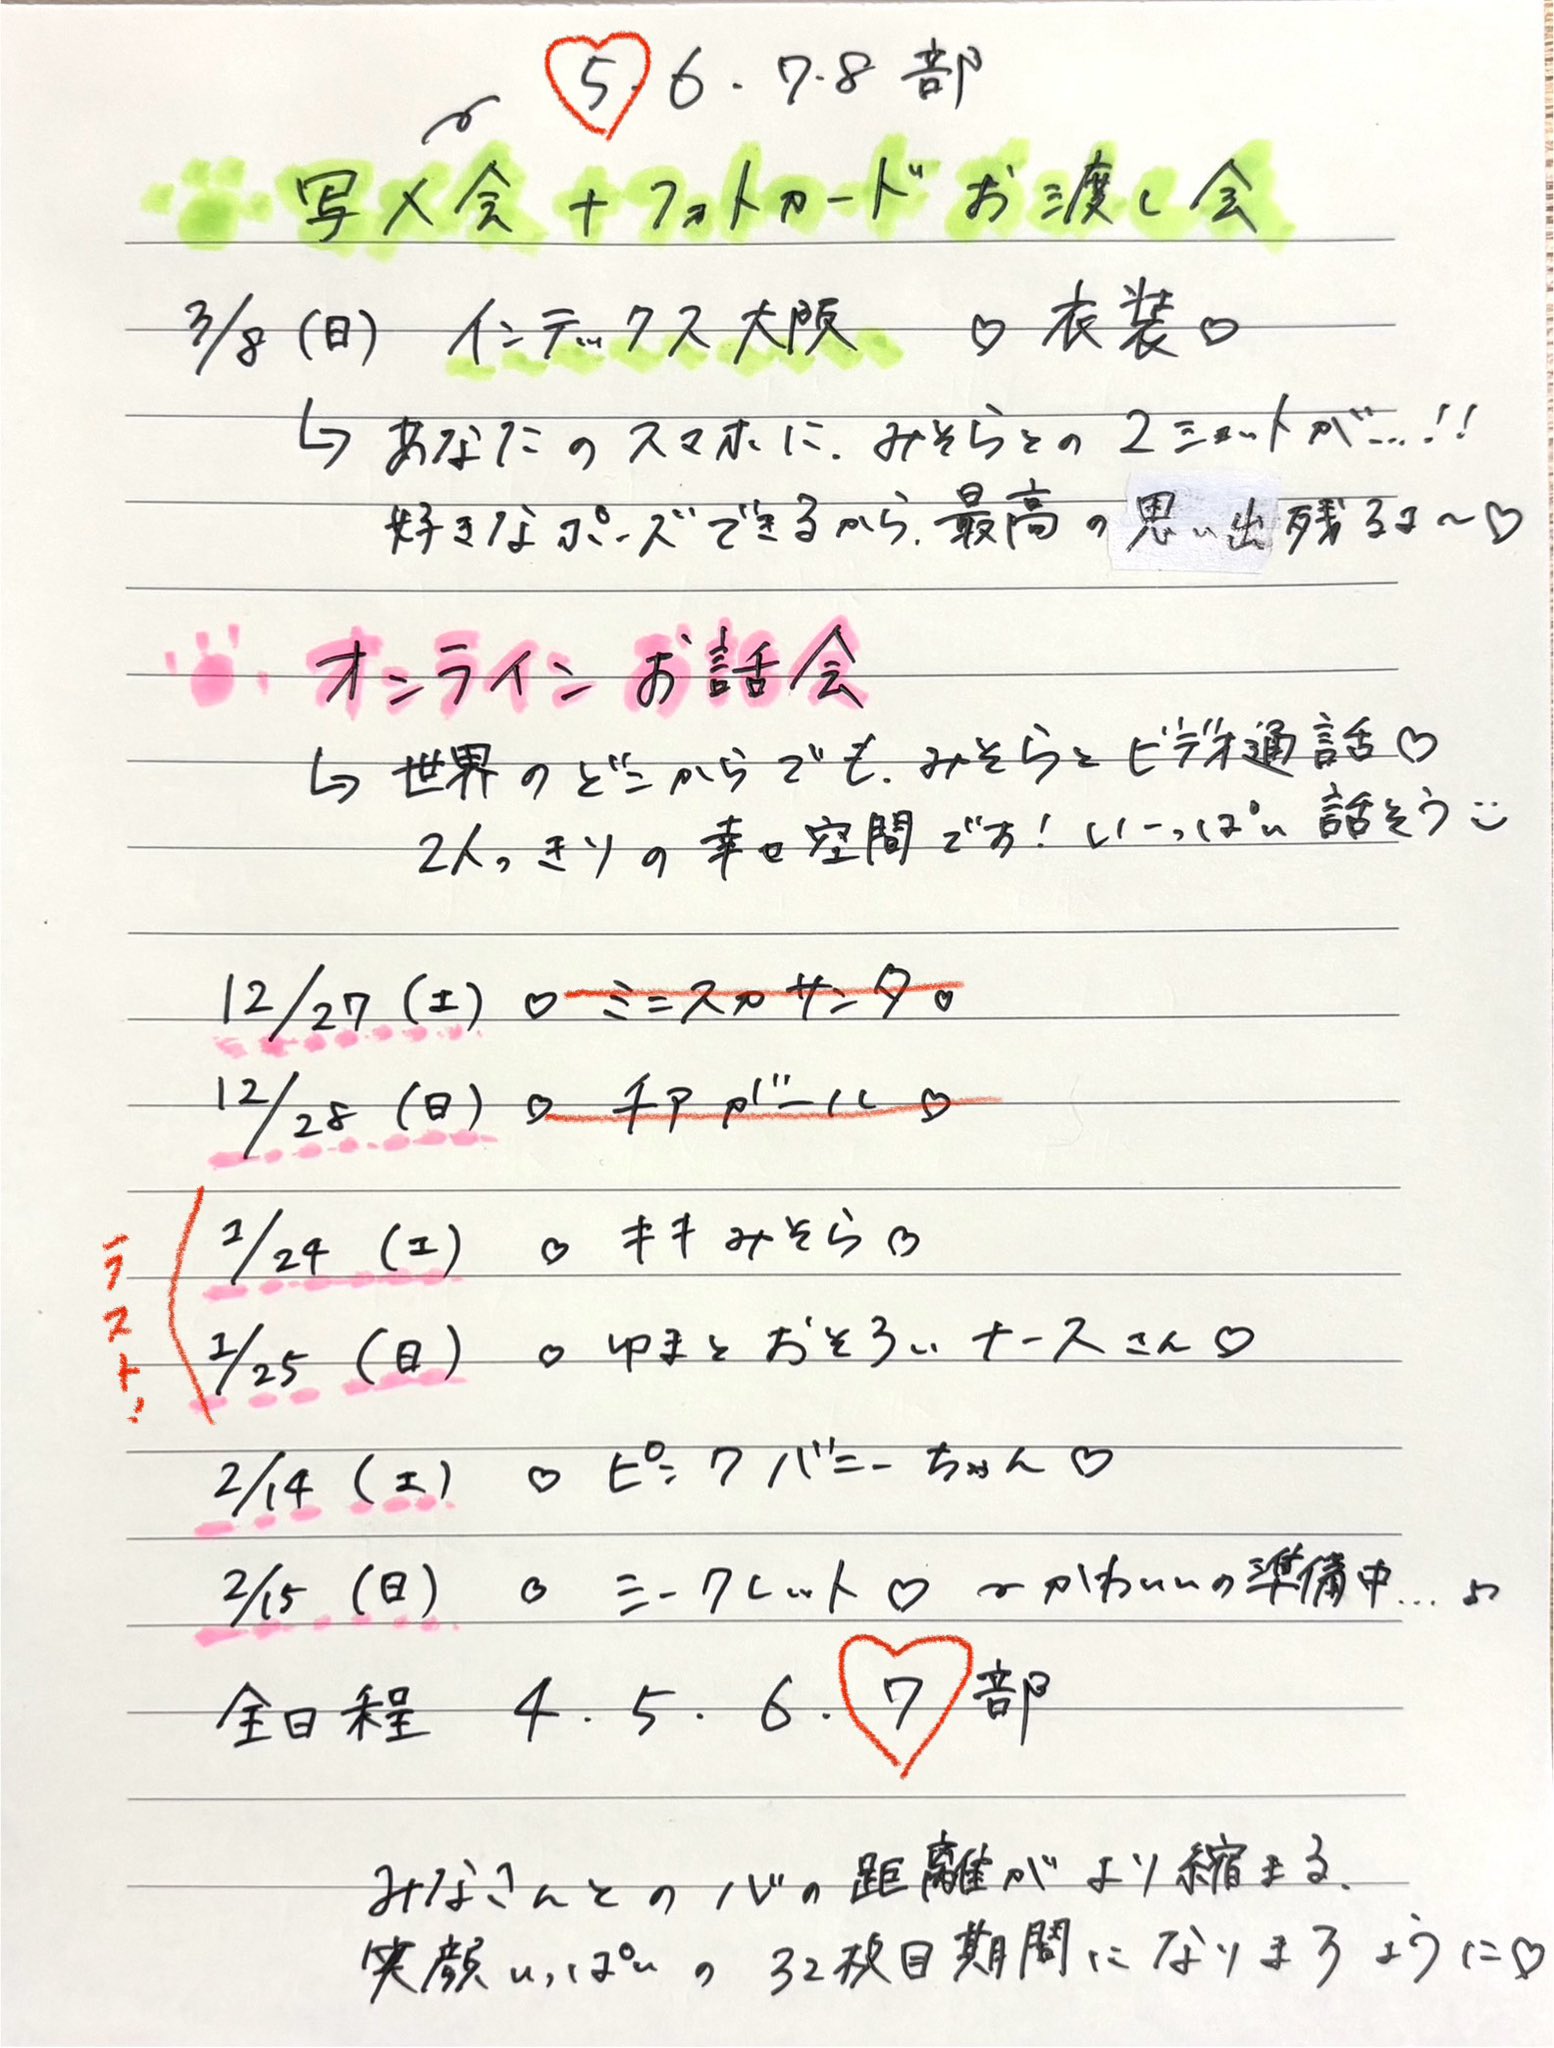 5.6.7.8部
写メ会+フォトカードお渡し会
3/8(日) インデックス大阪 ♡衣装♡
↳あなたのスマホに、みそらとの2ショットが...!!
好きなポーズできるから、最高の思い出残るよ〜♡
オンラインお話会
↳世界のどこからでも、みそらとビデオ通話♡
2人っきりの幸せ空間です!いーっぱい話そう
12/27(土) ♡ミニスカサンタ♡
12/28(日) ♡チアガール♡
ラスト!
1/24(土) ♡キキみそら♡
1/25(日) ♡ゆまとおそろいナースさん♡
2/14(土) ♡ピンクバニーちゃん♡
2/15(日) ♡シークレット♡ 〜かわいいの準備中...♪
全日程 4.5.6.7部
みなさんとの心の距離がより縮まる、
笑顔いっぱいの32枚目期間になりますように♡